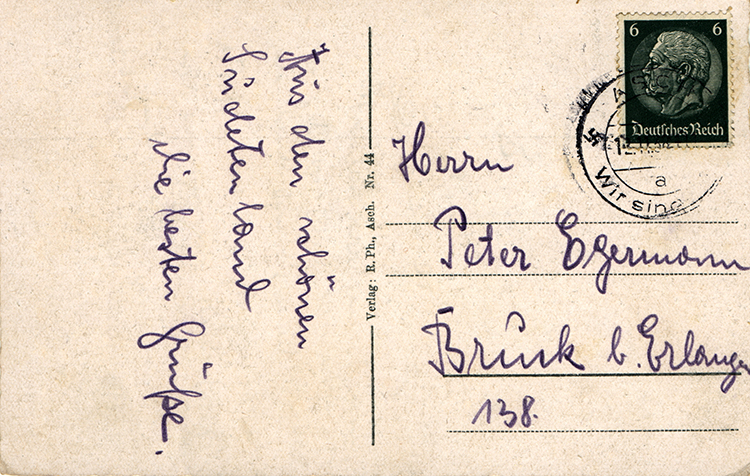 Aus den schönen
Sudetenland
die besten Grüße.
Verlag: R. Ph., Asch. Nr. 44
6 6
Deutsches Reich
a
Wir sind
Herrn
Peter Egermann
Bruck b. Erlangen
138.